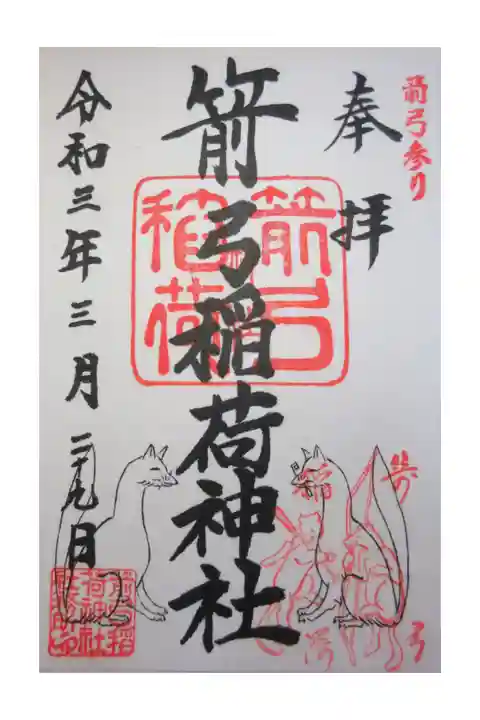 箭弓参り
奉拝
箭弓稲荷神社
箭弓稲荷
令和三年三月二十九日
箭弓稲荷神社